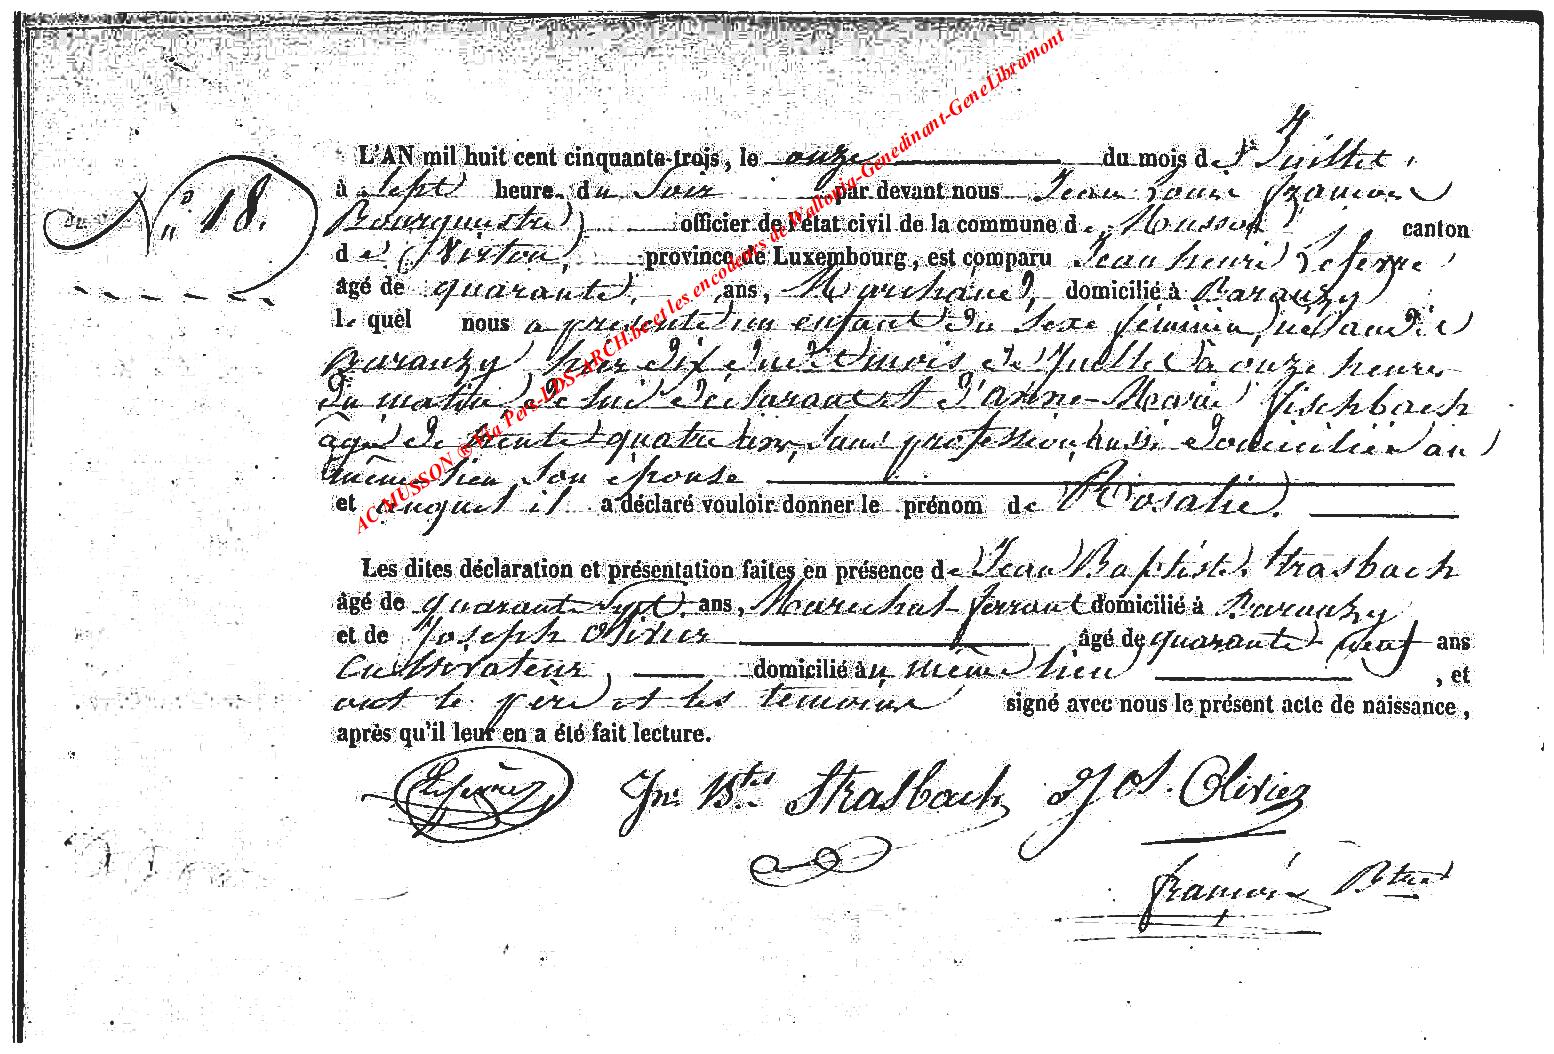 N° 18.
L'AN mil huit cent cinquante-trois, le onze du mois de Juillet,
à sept heure du soir par devant nous Jean Louis François
Bourgmestre officier de l'état civil de la commune de Musson canton
de Virton, province de Luxembourg, est comparu Jean henri Leferre
âgé de quarante ans, Marchand, domicilié à Baranzy
le quel nous a présenté un enfant du sexe féminin, né au dit
Baranzy, hier dix du mois de Juillet à onze heures
du matin, de lui déclarant et d'anne-Marie fischbach
âgée de trente-quatre ans, sans profession, aussi domiciliée au
même lieu, son épouse
et auquel il a déclaré vouloir donner le prénom de Rosalie.
Les dites déclaration et présentation faites en présence de Jean Baptiste Strasbach
âgé de quarante Sept ans, Marechal-ferrant domicilié à Baranzy
et de Joseph Olivier âgé de quarante neuf ans
Cultivateur, domicilié au même lieu, et
ont le père et les temoins signé avec nous le présent acte de naissance,
après qu'il leur en a été fait lecture.
Jn Btes Strasbach Jos. Olivier
françois Btre
AC-MUSSON ® via Pers-LDS-ARCH.be et les encodeurs de Wallonia-Genedinant-GeneLibramont